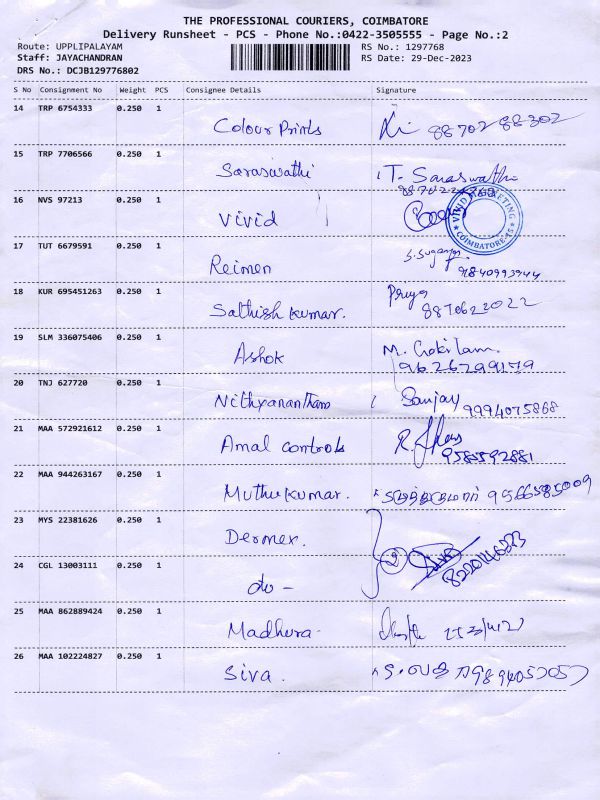 THE PROFESSIONAL COURIERS, COIMBATORE
Delivery Runsheet - PCS - Phone No.:0422-3505555 - Page No.:2
Route: UPPLIPALAYAM RS No.: 1297768
Staff: JAYACHANDRAN RS Date: 29-Dec-2023
DRS No.: DCJB129776802
S No Consignment No Weight PCS Consignee Details Signature
14 TRP 6754333 0.250 1
Colour Prints 88702 88302
15 TRP 7706566 0.250 1
Saraswathi T. Saraswathi
16 NVS 97213 0.250 1
Vivid VIVID MARKETING COIMBATORE-15
17 TUT 6679591 0.250 1
Reimen S. Suganya
9840993944
18 KUR 695451263 0.250 1
Sathish kumar. Priya
8870622022
19 SLM 336075406 0.250 1
Ashok M. Gokilam.
9626299179
20 TNJ 627720 0.250 1
Nithyanantham Sanjay 9994075868
21 MAA 572921612 0.250 1
Amal controls
9585592881
22 MAA 944263167 0.250 1
Muthukumar. முத்துகுமார் 9566585009
23 MYS 22381626 0.250 1
Dermex.
24 CGL 13003111 0.250 1
do - 8220146323
25 MAA 862889424 0.250 1
Madhura.
26 MAA 102224827 0.250 1
Siva.